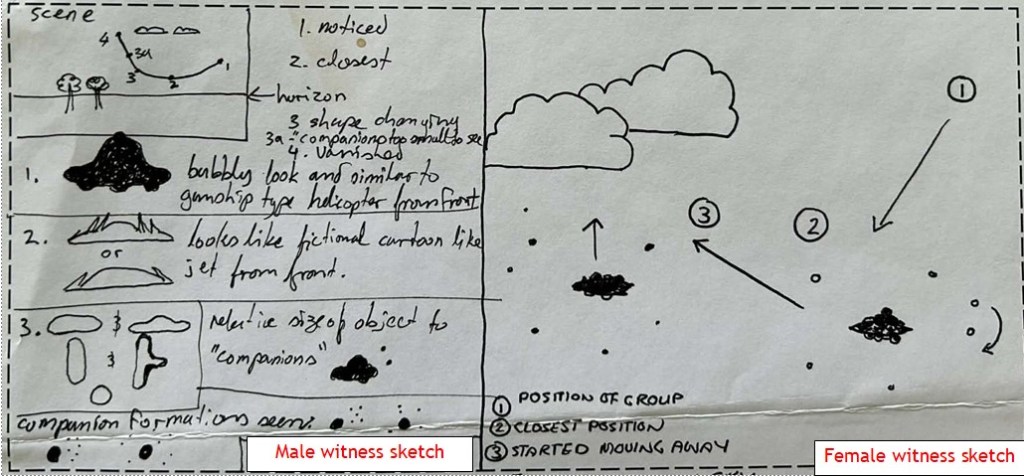 scene
4
3a
3
2
1
1. noticed
2. closest
horizon
3 shape changing
3a - "companions" too small to see
4. vanished
1.
bubbly look and similar to
gunship type helicopter from front
2.
or
looks like fictional cartoon like
jet from front.
3.
&
&
relative size of object to
"companions"
companion formations seen:
Male witness sketch
1
2
3
1 POSITION OF GROUP
2 CLOSEST POSITION
3 STARTED MOVING AWAY
Female witness sketch